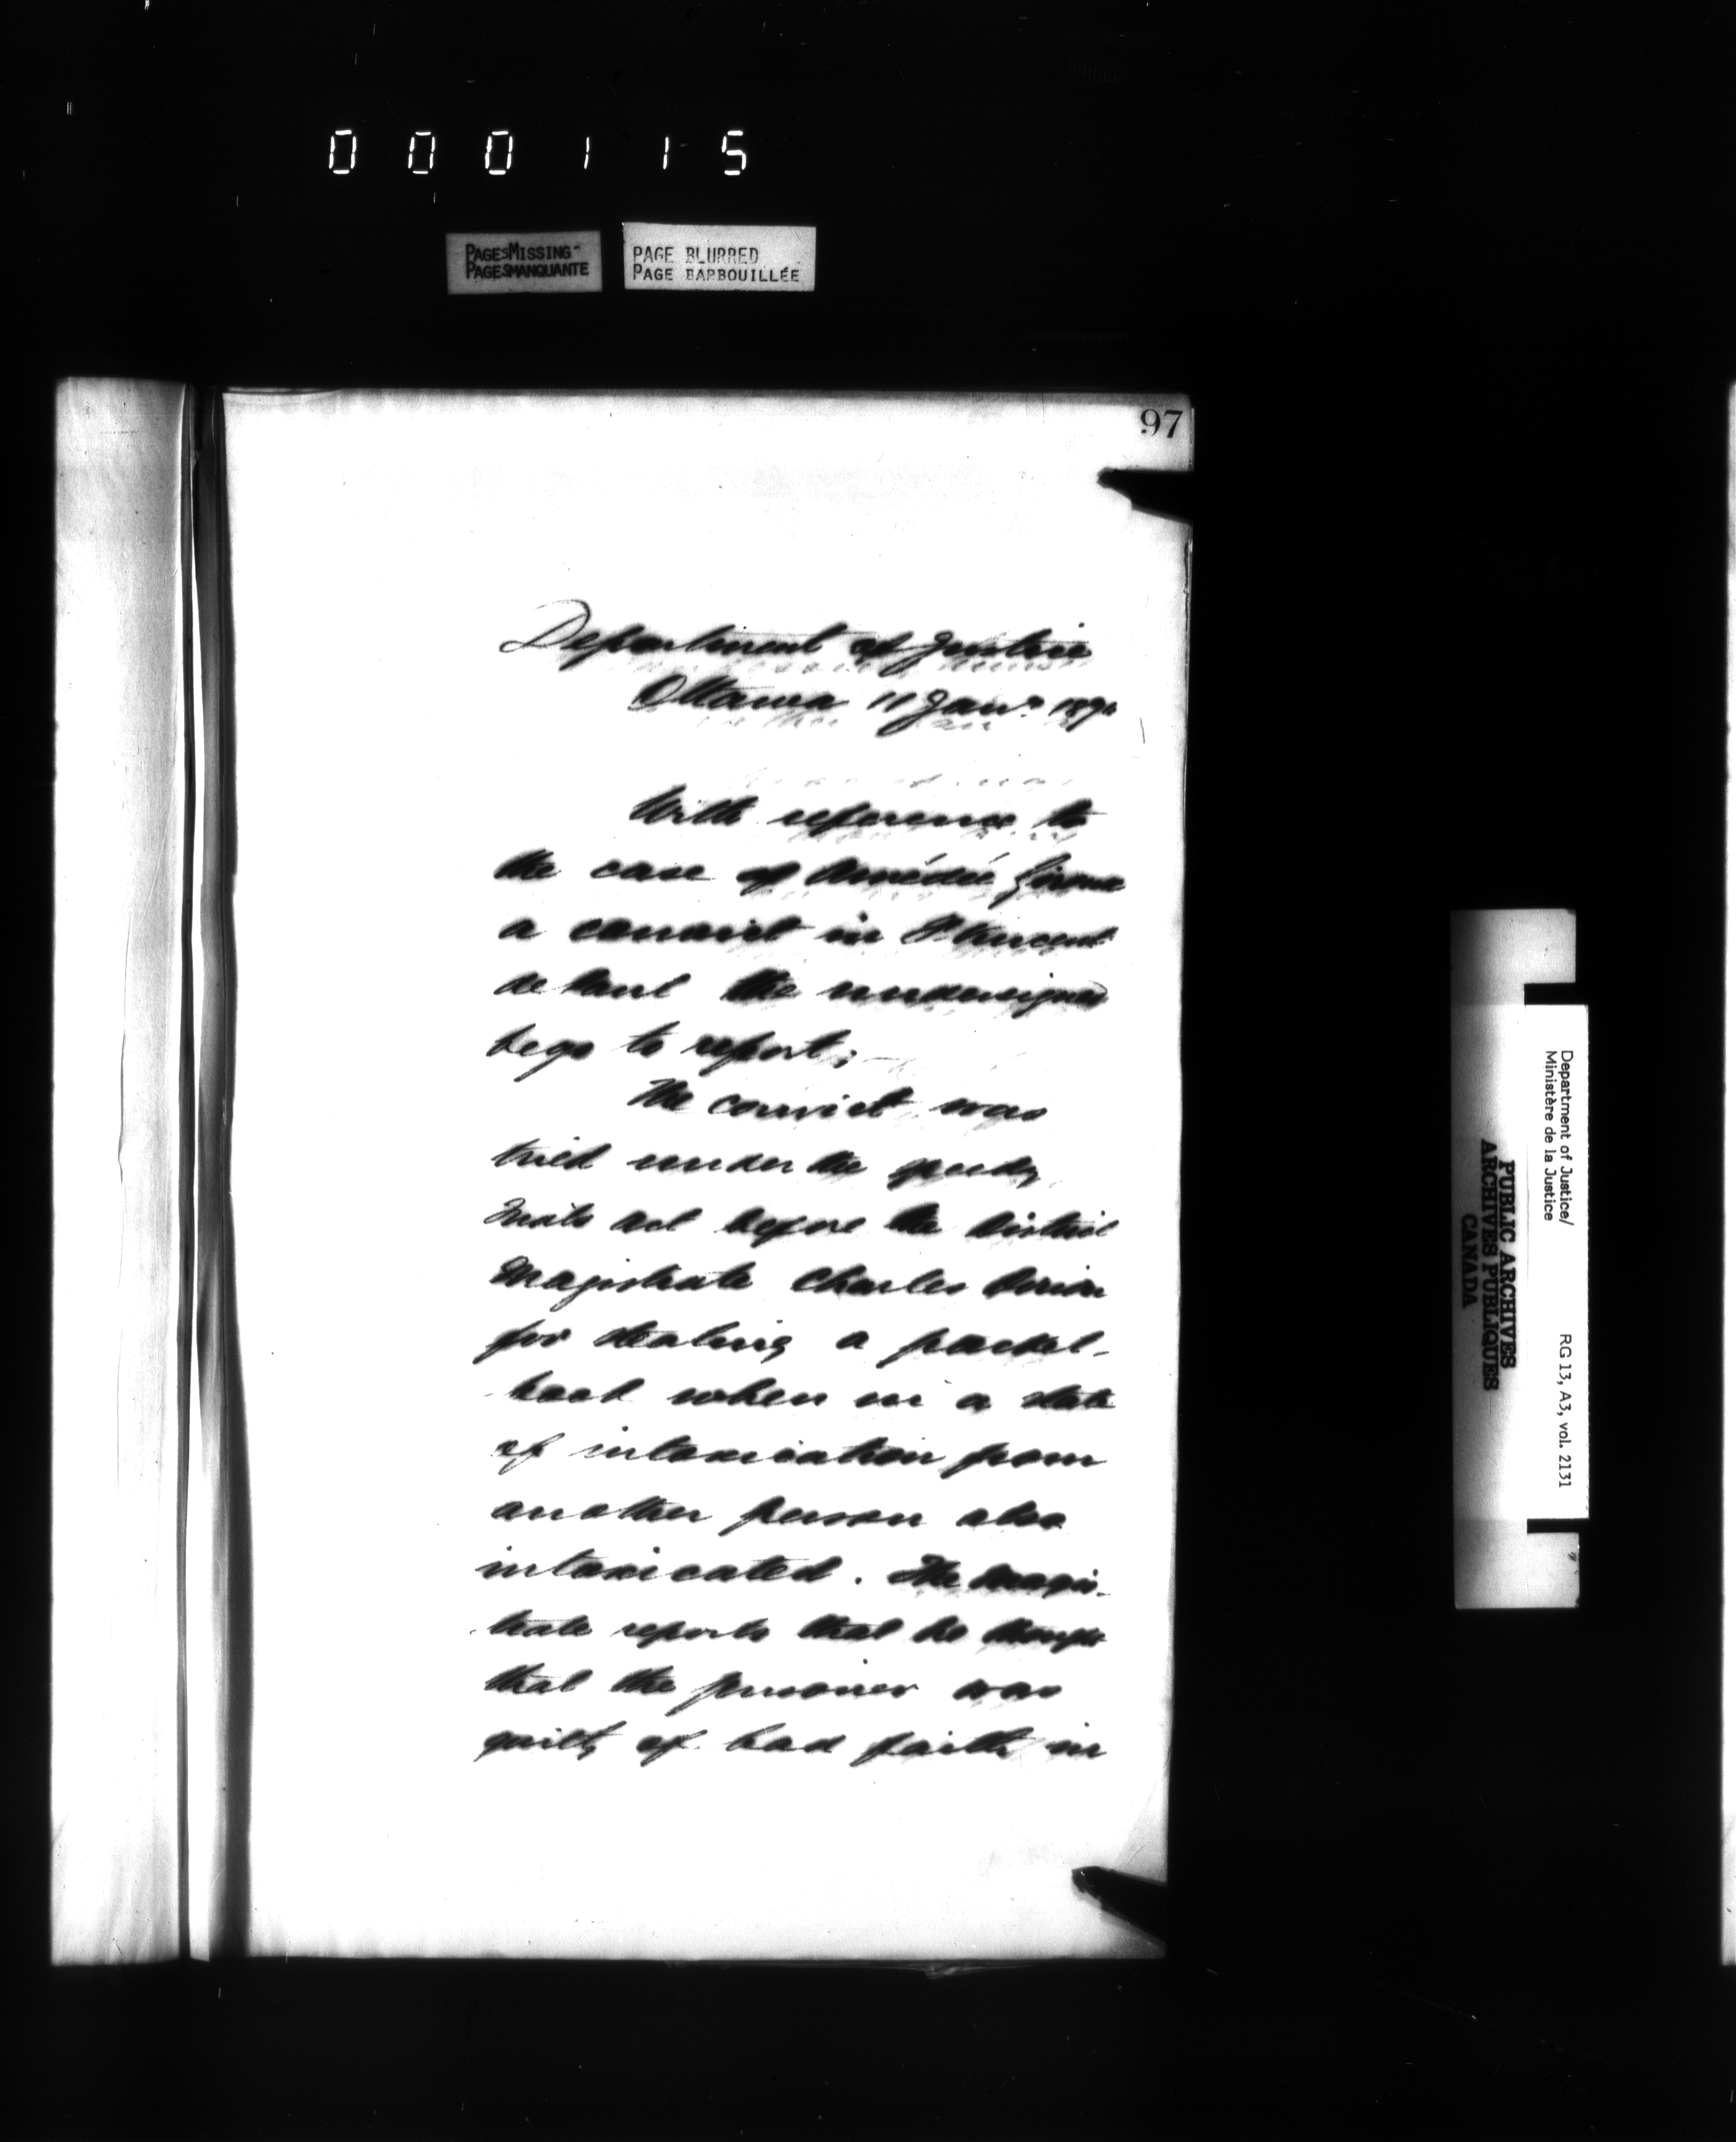 000115
PAGES MISSING
PAGES MANQUANTE
PAGE BLURRED
PAGE BARBOUILLÉE
97
Department of Justice
Ottawa 11 Jany.
With reference to
the case of Amédée
a convict in St Vincent
de Paul the undersigned
begs to report;
The convict was
tried under the speedy
trials act before the district
Magistrate Charles
for stealing a pocket-
book when in a state
of intoxication from
another person also
intoxicated. The magis-
trate reports that he thought
that the prisoner was
guilty of bad faith in
Department of Justice/
Ministère de la Justice
RG 13, A3, vol. 2131
PUBLIC ARCHIVES
ARCHIVES PUBLIQUES
CANADA